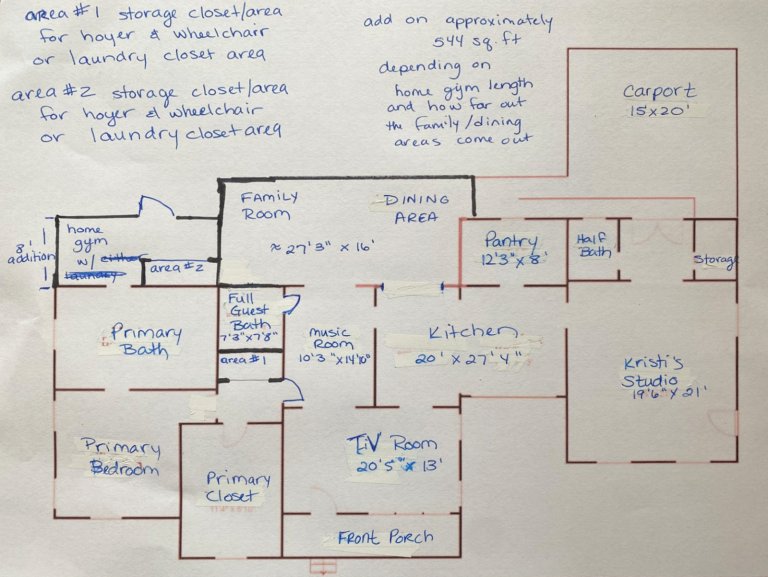 area #1 storage closet/area
for hoyer & wheelchair
or laundry closet area
area #2 storage closet/area
for hoyer & wheelchair
or laundry closet area
add on approximately
544 sq. ft
depending on
home gym length
and how far out
the family/dining
areas come out
Carport
15'x20'
FAMILY
ROOM
DINING
AREA
≈ 27'3" x 16'
8'
addition
home
gym
w/ either
laundry
area #2
Pantry
12'3" x 8'
Half
Bath
Storage
Full
Guest
Bath
7'3"x7'8"
Primary
Bath
music
Room
10'3" x14'10"
Kitchen
20' x 27'4"
area #1
Kristi's
Studio
19'6" x 21'
Primary
Bedroom
Primary
Closet
T.V Room
20'5" x 13'
Front Porch